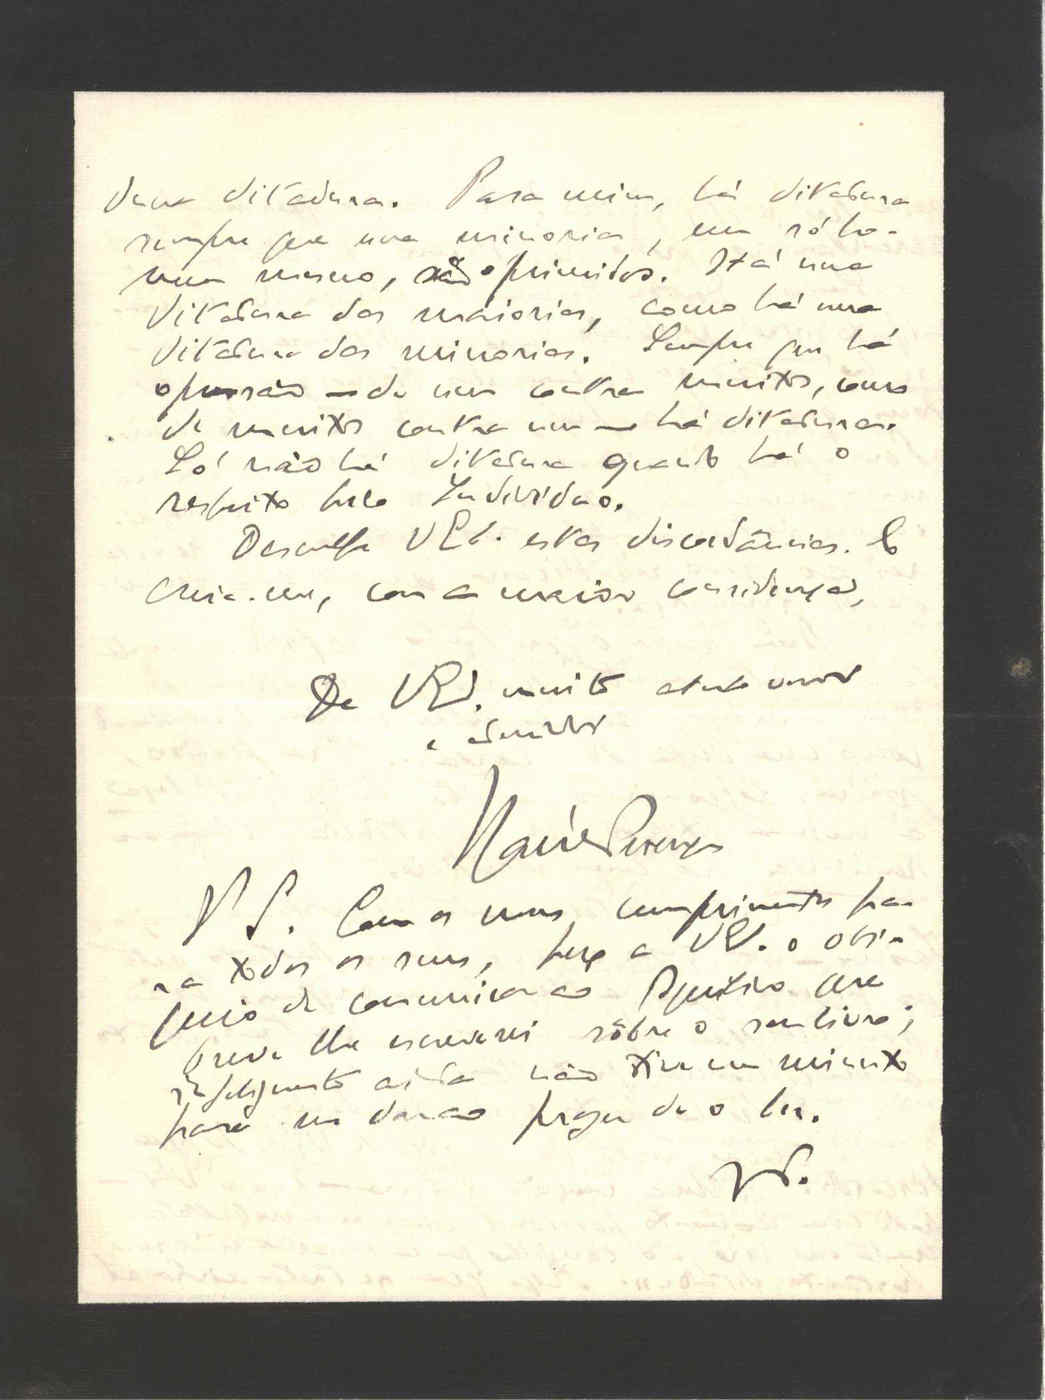 duma ditadura. Para mim, há ditadura
sempre que uma minoria, um só ho-
mem mesmo, são oprimidos. Há uma
ditadura das maiorias, como há uma
ditadura das minorias. Sempre que há
opressão — de um contra muitos, como
de muitos contra um — há ditadura.
Só não há ditadura quando há o
respeito pelo Indivíduo.
Desculpe V. Ex.ª estas discordâncias. E
creia-me, com a maior consideração,
De V. Ex.ª muito atento venor
e admirador
P. S. Com os meus cumprimentos pa-
ra todos os seus, peço a V. Ex.ª o obsé-
quio de comunicar ao Agostinho que
breve lhe escreverei sôbre o seu livro;
infelizmente ainda não tive um minuto
para me dar ao prazer de o ler.